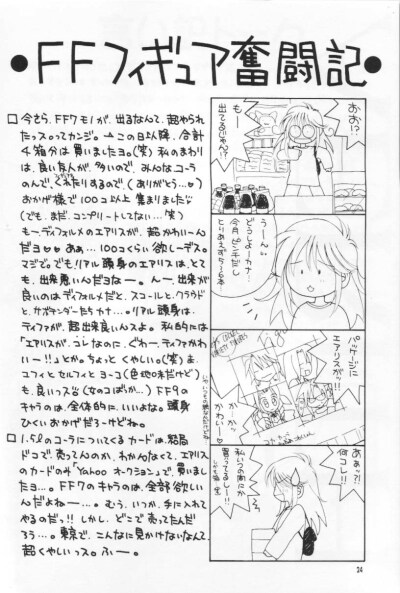 ●FFフィギュア奮闘記●
□今さら、FF7モノが、出るなんて、超やられ
たっスってカンジ。→この日以降、合計
4箱分は買いましたヨ。(笑)私のまわり
は、良い友人が、多いので、みんな、コーラ
のんで、くれたりするので、(ありがとう…♡)
おかげ様で100コ以上集まりました
(でも、まだ、コンプリートしてない…笑)
もー、ディフォルメのエアリスが、超かわいーん
だヨ♡♡あぁ…100コくらい欲しーデス。
マジで。でも、リアル頭身のエアリスは、とて
も、出来悪いんだヨなー。んー、出来が
良いのはディフォルメだと、スコールと、クラウド
と、サボテンダーたちカナ…。リアル頭身は、
ティファが、超出来良いんスよ。私的には
「エアリスが、コレなのに、ぐわーティファかわ
いー!!」とか。ちょっとくやしい。(笑)ま、
ユフィとセルフィとヨーコ(色地味だけど)
も、良いっス(女のコばか…?)FF9の
キャラのは、全体的に、いいよな。頭身
ひくいおかげだろーけどね。
□1.5ℓのコーラについてくるカードは、結局
ドコで、売ってんのか、わかんなくて、エアリス
のカードのみ「Yahooオークション」で、買いまし
たヨ…。FF7のキャラのは、全部欲しい
んだよねー…。むう、いつか、手に入れて
やるのだっ!!しかし、どこで売ってたんだ
ろう…。東京で、こんなに見かけないなんて、
超くやしいっス。ふー。
おお!?
もー
出てるじゃん。
うーん。
どうしよーカナ…
今月ピンチだし
とりあえず5〜6本
パッケージに
エアリスがっ!!
かーっ
かわいー♡
あぁっ?!
何コレ!!
私いつの間にか
買ってるしー!!
24